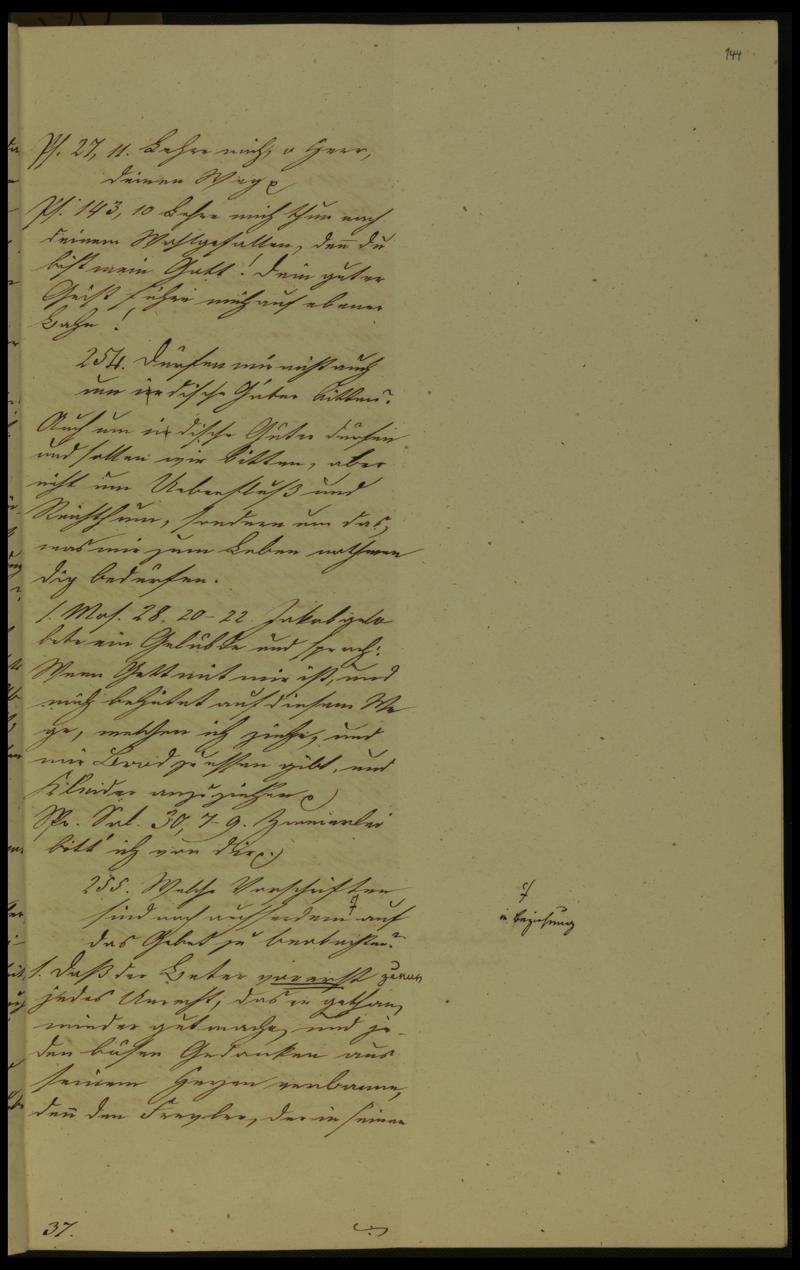 144
Ps. 27, 11. Lehre mich, o Herr,
deinen Weg
Ps. 143, 10 Lehre mich thun nach
deinem Wohlgefallen, den̄ du
bist mein Gott! Dein guter
Geist führe mich auf ebener
Bahn!
254. Dürfen wir nicht auch
um irdische Güter bitten?
Auch um irdische Güter dürfen
und sollen wir bitten, aber
nicht um Ueberfluß und
Reichthum, sondern um das,
was wir zum Leben nothwen
dig bedürfen.
1. Mos. 28, 20-22 Jakob gelo
bete ein Gelübde und sprach:
Wenn Gott mit mir ist, und
mich behütet auf diesem We
ge, welchen ich ziehe, und
mir Brod zu essen gibt, und
Kleider anzuziehen
Spr. Sal. 30, 7-9. Zweierlei
bitt' ich von dir
255. Welche Vorschriften
sind noch außerdem auf
das Gebet zu beobachten?
in Beziehung
1. Daß der Beter vorerst
jedes Unrecht, das er gethan,
wieder gut mache, und je-
den bösen Gedanken aus
seinem Herzen verbanne,
den̄ den Frevler, der in seiner
37.